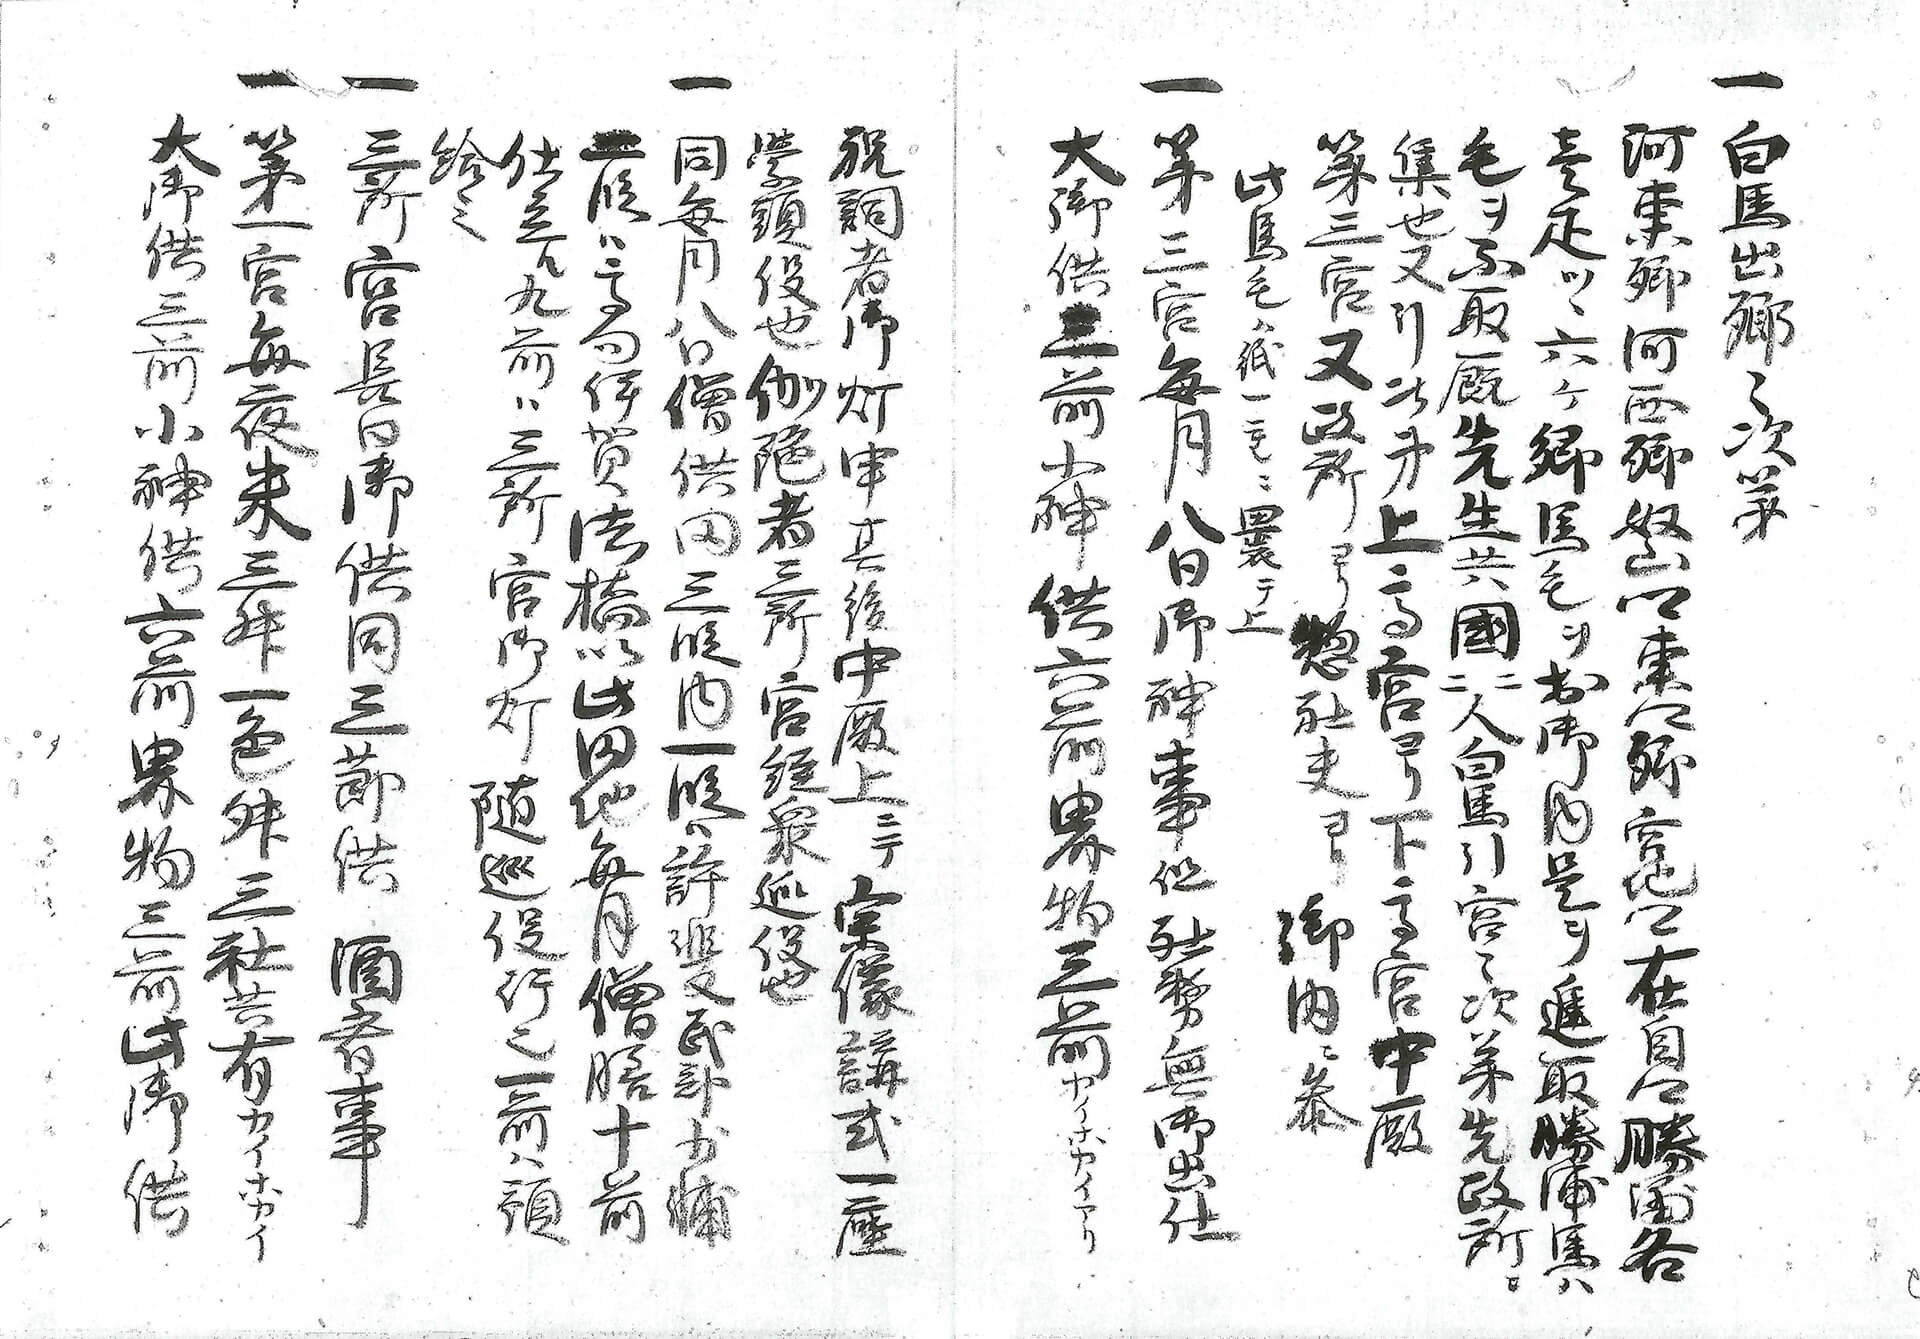 一 白馬出郷之次第
河東郷河西郷奴山口東郷宮地在自勝浦各
壱疋ツヽ六ケ郷馬毛ヲ書御内是ヲ進取勝浦馬ハ
毛ヲ不取厩先生共國二人二白馬引宮之次第先政所ニ
集也又引次第上高宮ヨリ下高宮中殿
第三宮又政所ヨリ惣社吏ヨリ御内ニ参
此馬毛ハ紙一巻ニ裏テ上
一 第三宮毎月八日御神事但社務無御出仕
大御供三前小神供六前畏物三前カイホカイアリ
祝詞者御灯申其後中殿上ニテ宗像講式一座
学頭役也伽陀者三所宮経衆巡役也
一 同毎月八日僧供田三段内一段ハ許斐又民部少輔
二段ハ高向伊賀法橋以此田地毎月僧膳十前
仕立九前ハ三所宮御灯随巡役行之一前ハ頭
給之
一 三所宮長日御供同三節供 酒肴事
一 第一宮毎夜米三舛一色舛三社共有カイホカイ
大御供三前小神供六前畏物三前此御供